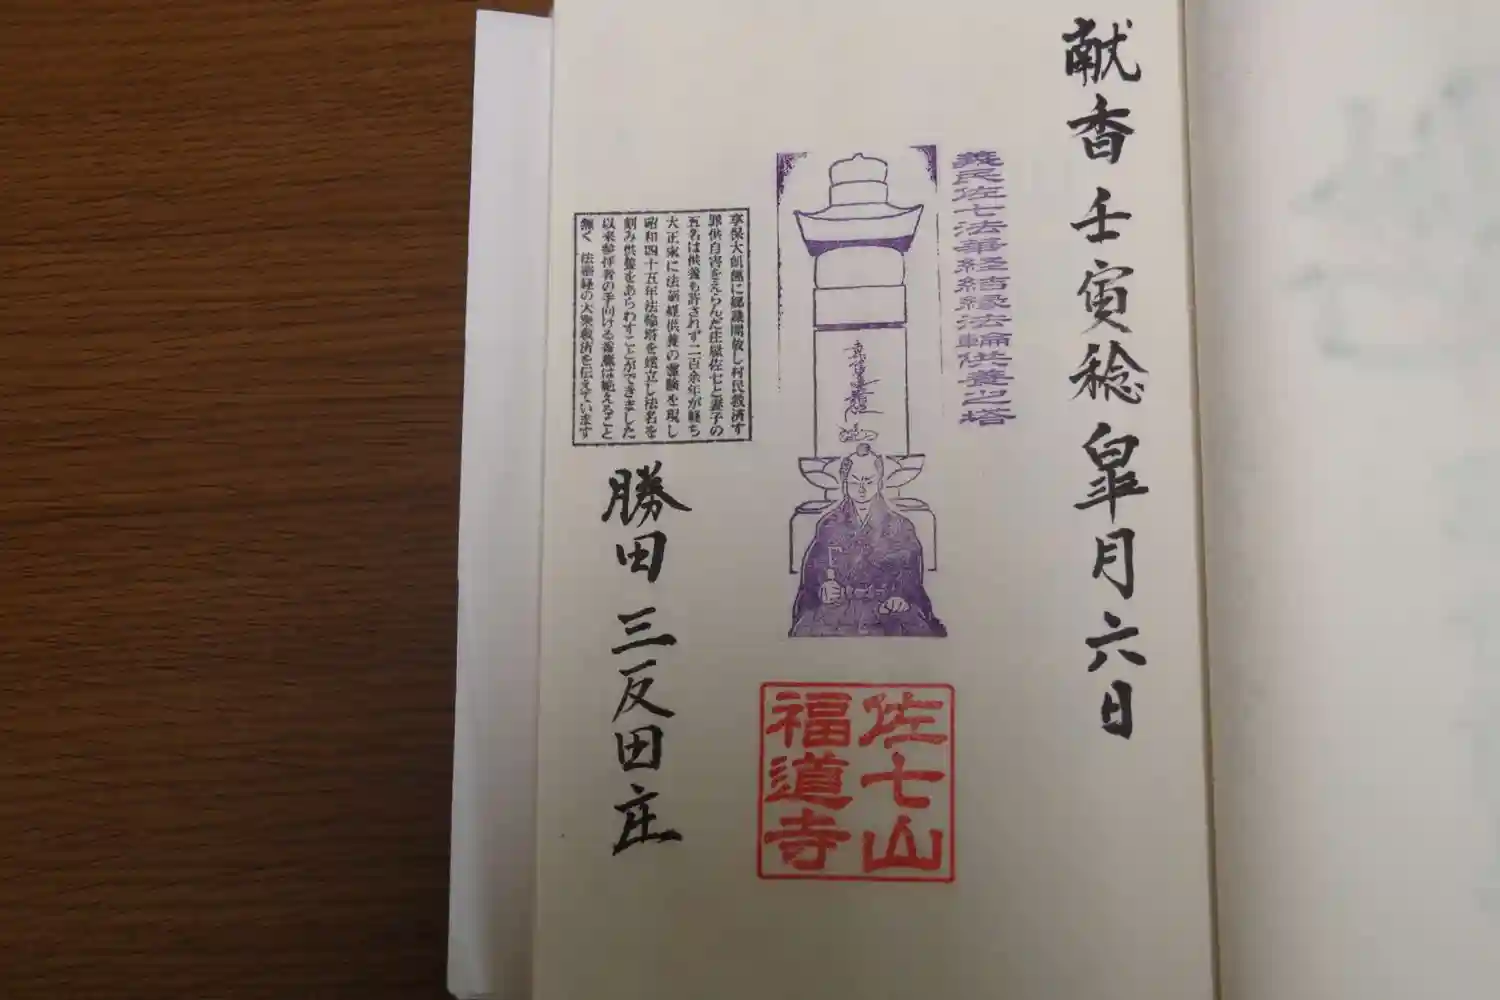 献香 壬寅稔 皐月 六日
義民佐七法華経結縁法輪供養之塔
佐七山
福道寺
享保大飢饉に郷蔵開放し村民救済す
罪供自害をえらんだ庄嶽佐七と妻子の
五名は供養も許されず二百余年が経ち
大正末に法華経供養の霊験を現し
昭和四十五年法輪塔を建立し法名を
刻み供養をあらわすことができました
以来参拝者の手向ける香煙は絶えること
無く 法華経の大衆救済を伝えています
勝田 三反田 庄